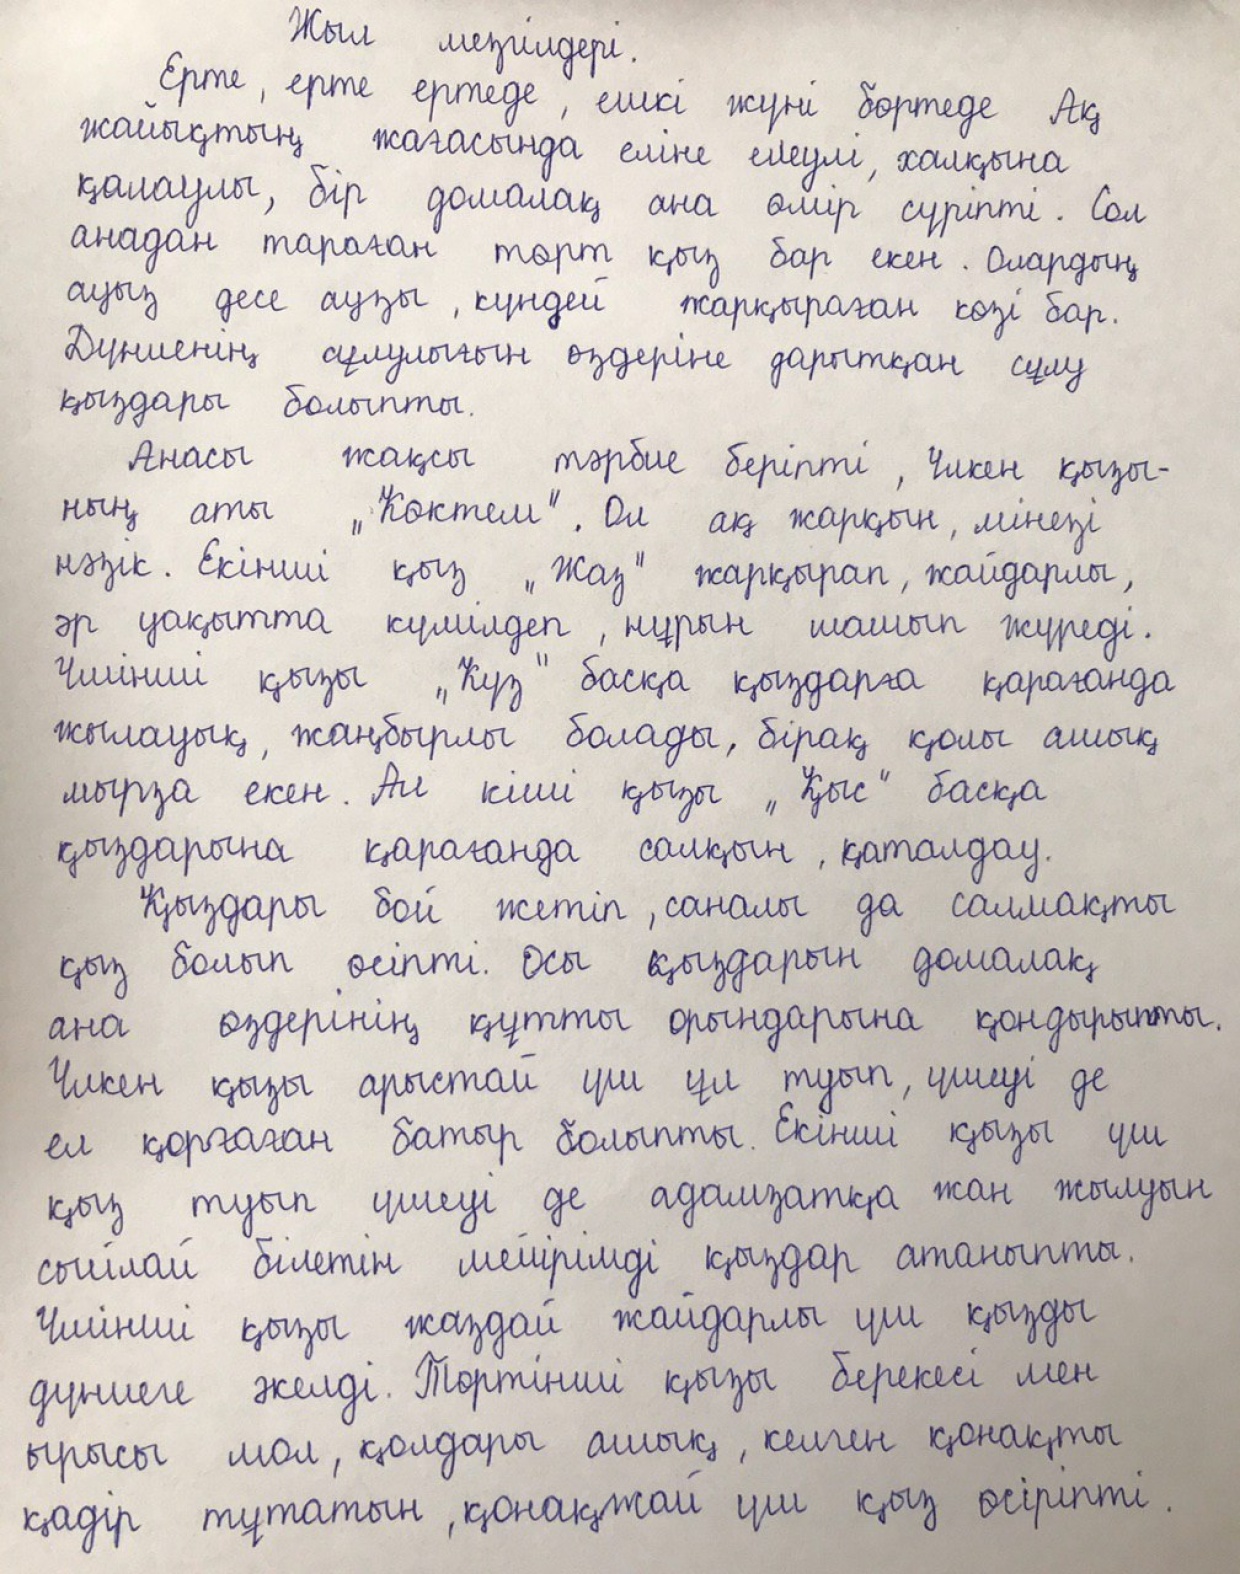 Жыл мезгілдері.
Ерте, ерте ертеде, ешкі жүні бөртеде Ақ
жайықтың жағасында еліне елеулі, халқына
қалаулы, бір домалақ ана өмір сүріпті. Сол
анадан тараған төрт қыз бар екен. Олардың
ауыз десе аузы, күндей жарқыраған көзі бар.
Дүниенің сұлулығын өздеріне дарытқан сұлу
қыздары болыпты.
Анасы жақсы тәрбие беріпті, Үлкен қызы-
ның аты „Көктем". Ол ақ жарқын, мінезі
нәзік. Екінші қыз „Жаз" жарқырап, жайдарлы,
әр уақытта күлілдеп, нұрын шашып жүреді.
Үшінші қызы „Күз" басқа қыздарға қарағанда
жылауық, жаңбырлы болады, бірақ қолы ашық
мырза екен. Ал кіші қызы „Қыс" басқа
қыздарына қарағанда салқын, қаталдау.
Қыздары бой жетіп, саналы да салмақты
қыз болып өсіпті. Осы қыздарын домалақ
ана өздерінің құтты орындарына қондырыпты.
Үлкен қызы арыстай үш ұл туып, үшеуі де
ел қорғаған батыр болыпты. Екінші қызы үш
қыз туып үшеуі де адамзатқа жан жылуын
сыйлай білетін мейірімді қыздар атаныпты.
Үшінші қызы жаздай жайдарлы үш қызды
дүниеге әкелді. Төртінші қызы берекесі мен
ырысы мол, қолдары ашық, келген қонақты
қадір тұтатын, қонақжай үш қыз өсіріпті.